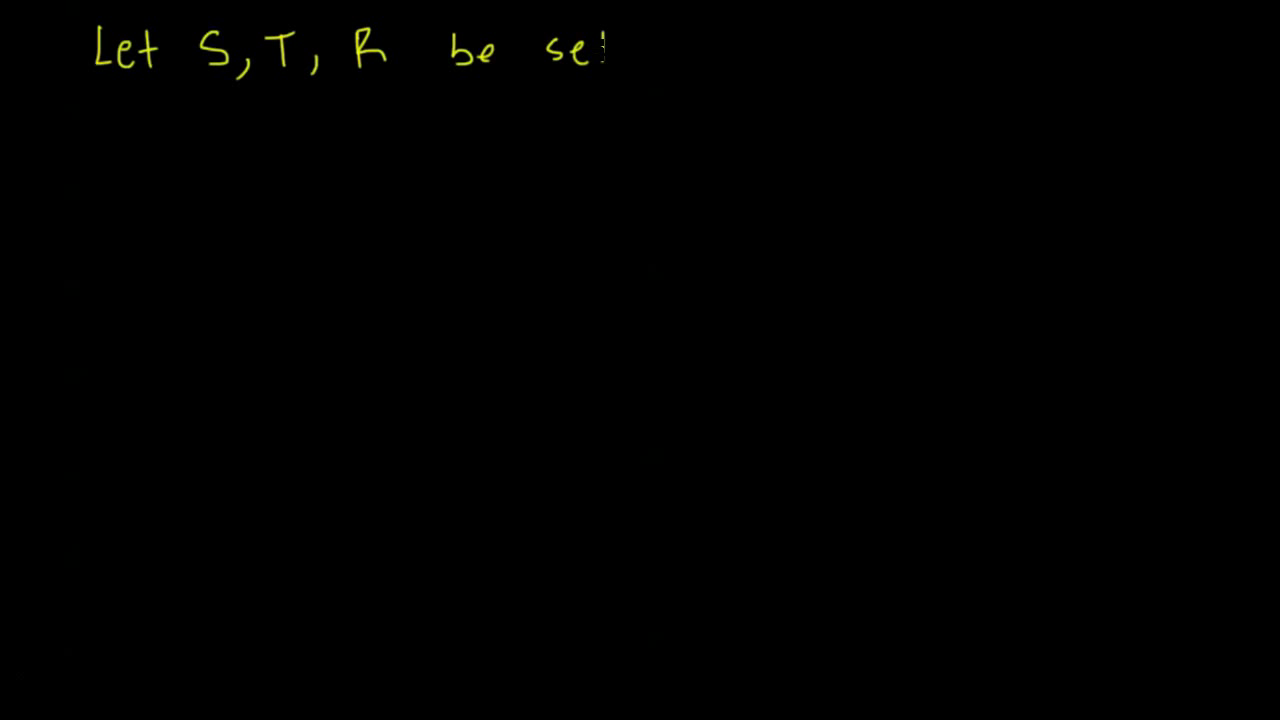 Let S, T, R be set